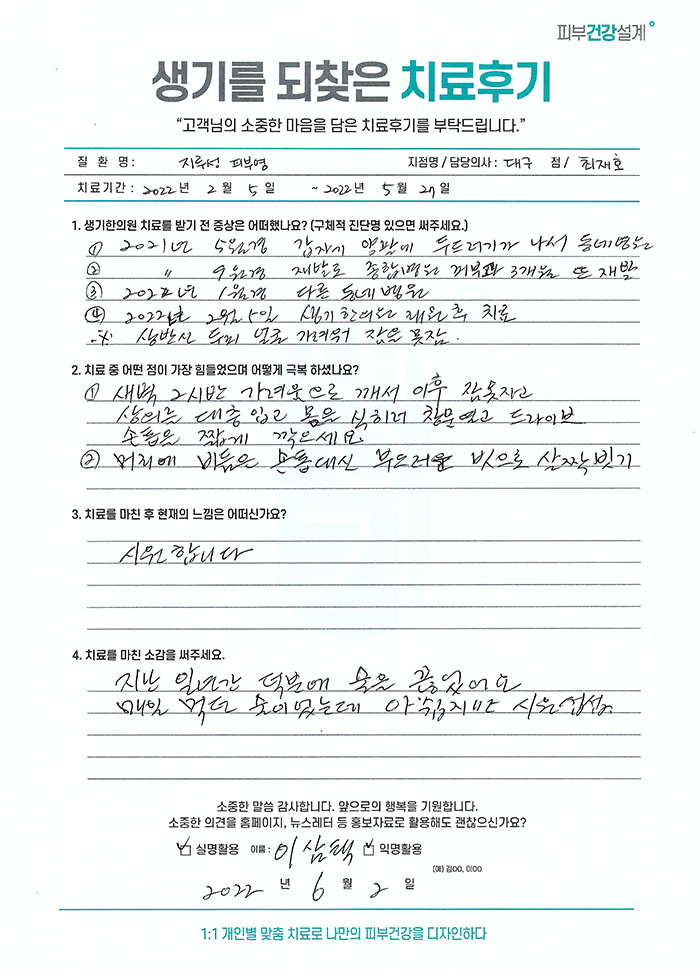 피부건강설계
생기를 되찾은 치료후기
“고객님의 소중한 마음을 담은 치료후기를 부탁드립니다.”
질 환 명 : 지루성 피부염 지점명 / 담당의사 : 대구 점 / 최재호
치료기간 : 2022년 2월 5일 ~ 2022년 5월 27일
1. 생기한의원 치료를 받기 전 증상은 어떠했나요? (구체적 진단명 있으면 써주세요.)
① 2021년 5월경 갑자기 양팔에 두드러기가 나서 동네병원
② 〃 9월경 재발로 종합병원 피부과 3개월 또 재발
③ 2022년 1월경 다른 동네병원
④ 2022년 2월 5일 생기한의원 내원 후 치료
※ 상반신 두피 얼굴 가려워 잠을 못잠.
2. 치료 중 어떤 점이 가장 힘들었으며 어떻게 극복 하셨나요?
① 새벽 2시반 가려움으로 깨서 이후 잠못자고
상의를 대충입고 몸을 식히러 창문열고 드라이브
손톱은 짧게 깍으세요
② 머리에 비듬은 손톱대신 부드러운 빗으로 살짝빗기
3. 치료를 마친 후 현재의 느낌은 어떠신가요?
시원합니다
4. 치료를 마친 소감을 써주세요.
지난 일년간 덕분에 술은 끊었어도
매일 먹던 술이었는데 아쉽지만 시원섭섭
소중한 말씀 감사합니다. 앞으로의 행복을 기원합니다.
소중한 의견을 홈페이지, 뉴스레터 등 홍보자료로 활용해도 괜찮으신가요?
실명활용 이름 : 이삼택 익명활용
(예) 김OO, 이OO
2022 년 6 월 2 일
1:1 개인별 맞춤 치료로 나만의 피부건강을 디자인하다